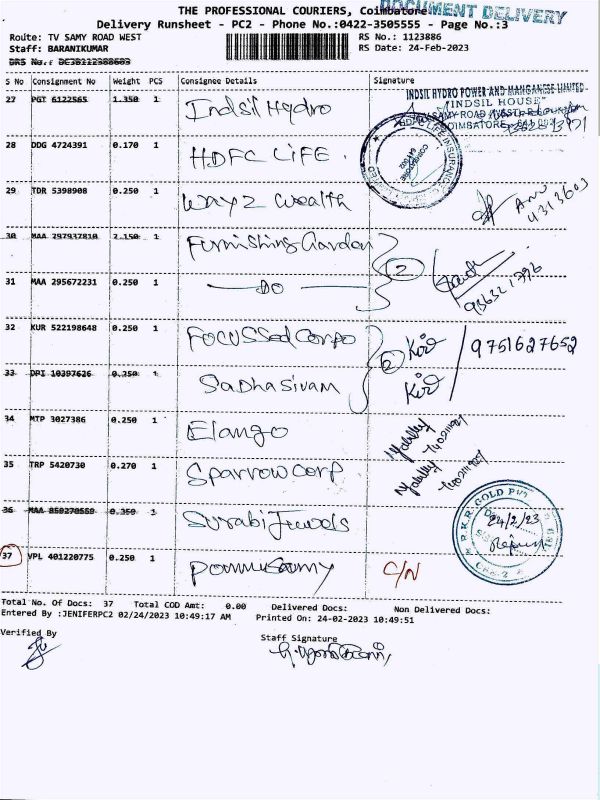 THE PROFESSIONAL COURIERS, Coimbatore.
DOCUMENT DELIVERY
Delivery Runsheet - PC2 - Phone No.:0422-3505555 - Page No.:3
Route: TV SAMY ROAD WEST
RS No.: 1123886
Staff: BARANIKUMAR
RS Date: 24-Feb-2023
S No Consignment No Weight PCS Consignee Details Signature
INDSIL HYDRO POWER AND MANGANESE LIMITED
"INDSIL HOUSE"
27 PGT 6122565 1.350 1 Indsil Hydro
28 DDG 4724391 0.170 1 HDFC LIFE.
29 TDR 5398908 0.250 1 way2 wealth
4313603
30 MAA 297937810 2.150 1 Furnishing Garden
2
31 MAA 295672231 0.250 1 DO
32 KUR 522198648 0.250 1 Focussed Corpo
2 9751627652
33 DPI 10397626 0.250 1 Sadhasivam
34 MTP 3027386 0.250 1 Elango
35 TRP 5420730 0.270 1 Sparrow corp
36 MAA 850270550 0.350 1 Surabi Jewels
24/2/23
37 VPL 401220775 0.250 1 Ponnusamy C/N
Total No. Of Docs: 37 Total COD Amt: 0.00 Delivered Docs: Non Delivered Docs:
Entered By :JENIFERPC2 02/24/2023 10:49:17 AM Printed On: 24-02-2023 10:49:51
Verified By
Staff Signature